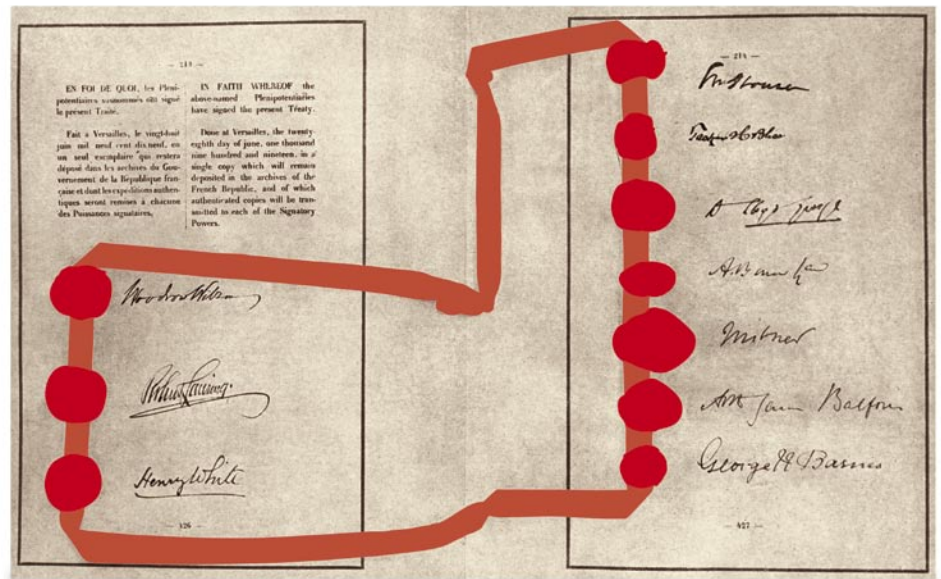 EN FOI DE QUOI, les Pléni-
potentiaires susnommés ont signé
le présent Traité.
Fait à Versailles, le vingt-huit
juin mil neuf cent dix-neuf, en
un seul exemplaire qui restera
déposé dans les archives du Gou-
vernement de la République fran-
çaise et dont les expéditions authen-
tiques seront remises à chacune
des Puissances signataires.
IN FAITH WHEREOF the
above-named Plenipotentiaries
have signed the present Treaty.
Done at Versailles, the twenty-
eighth day of june, one thousand
nine hundred and nineteen, in a
single copy which will remain
deposited in the archives of the
French Republic, and of which
authenticated copies will be tran-
smitted to each of the Signatory
Powers.
Woodrow Wilson
Robert Lansing.
Henry White
— 426 —
— 214 —
House
Tasker H Bliss
D Lloyd George
A. Bonar Law
Milner
Arthur James Balfour
George N Barnes
— 427 —